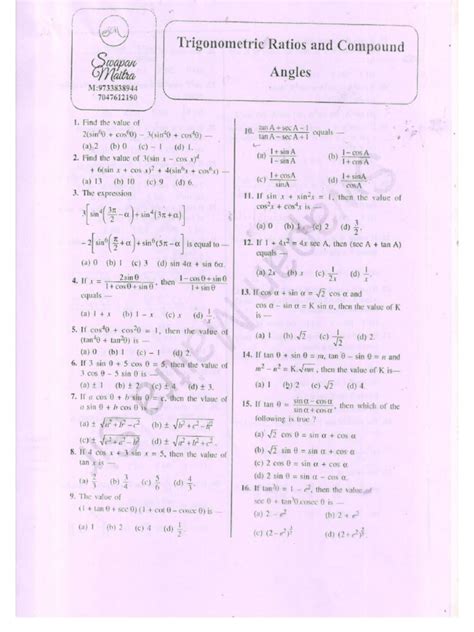 Swapan
Maitra
M:9733838944
7047612190
Trigonometric Ratios and Compound
Angles
1. Find the value of
2(sin⁶θ + cos⁶θ) – 3(sin⁴θ + cos⁴θ) —
(a) 2 (b) 0 (c) – 1 (d) 1.
2. Find the value of 3(sin x – cos x)⁴
+ 6(sin x + cos x)² + 4(sin⁶x + cos⁶x) —
(a) 13 (b) 10 (c) 9 (d) 6.
3. The expression
3[sin⁴(3π/2 – α) + sin⁴(3π + α)]
– 2[sin⁶(π/2 + α) + sin⁶(5π – α)] is equal to —
(a) 0 (b) 1 (c) 3 (d) sin 4α + sin 6α.
4. If x = 2sinθ/(1 + cosθ + sinθ), then (1 – cosθ + sinθ)/(1 + sinθ)
equals —
(a) 1 + x (b) 1 – x (c) x (d) 1/x
5. If cos⁴θ + cos²θ = 1, then the value of
(tan⁴θ + tan²θ) is —
(a) 0 (b) 1 (c) – 1 (d) 2.
6. If 3 sin θ + 5 cos θ = 5, then the value of
3 cos θ – 5 sin θ is —
(a) ± 1 (b) ± 2 (c) ± 4 (d) ± 3.
7. If a cos θ + b sin θ = c, then the vlaue of
a sin θ + b cos θ is
(a) ± √(a² + b² – c²) (b) ± √(b² + c² – a²)
(c) ± √(c² + a² – b²) (d) ± √(a² + b² + c²)
8. If 4 cos x + 3 sin x = 5, then the value of
tan x is —
(b) 3/4 (c) 5/6 (d) 4/3
9. The value of
(1 + tan θ + sec θ) (1 + cot θ – cosec θ) is —
(a) 1 (b) 2 (c) 4 (d) 1/2.
10. (tan A + sec A – 1)/(tan A – sec A + 1) equals —
(a) (1 + sin A)/(1 – sin A) (b) (1 – cos A)/(1 + cos A)
(c) (1 + cosA)/sinA (d) (1 + sinA)/cosA
11. If sin x + sin²x = 1, then the value of
cos²x + cos⁴x is —
(a) 0 (b) 1 (c) 2 (d) 3/2.
12. If 1 + 4x² = 4x sec A, then (sec A + tan A)
equals —
(a) 2x (b) x (c) 1/2x (d) 1/x.
13. If cos α + sin α = √2 cos α and
cos α – sin α = K sin α, then the value of K
is —
(a) 1 (b) √2 (c) 1/√2 (d) 2.
14. If tan θ + sin θ = m, tan θ – sin θ = n and
m² – n² = K√mn, then the value of K is—
(a) 1 (b) 2 (c) √2 (d) 4.
15. If tan θ = (sin α – cos α)/(sin α + cos α), then which of the
following is true ?
(a) √2 cos θ = sin α + cos α
(b) √2 cos θ = sin α – cos α
(c) 2 cos θ = sin α + cos α
(d) 2 sin θ = sin α + cos α
16. If tan²θ = 1 – e², then the value of
sec θ + tan³θ cosec θ is —
(a) 2 – e² (b) 2 + e²
(c) (2 – e²)^(3/2) (d) (2 + e²)^(3/2)
Swapan Maitra's